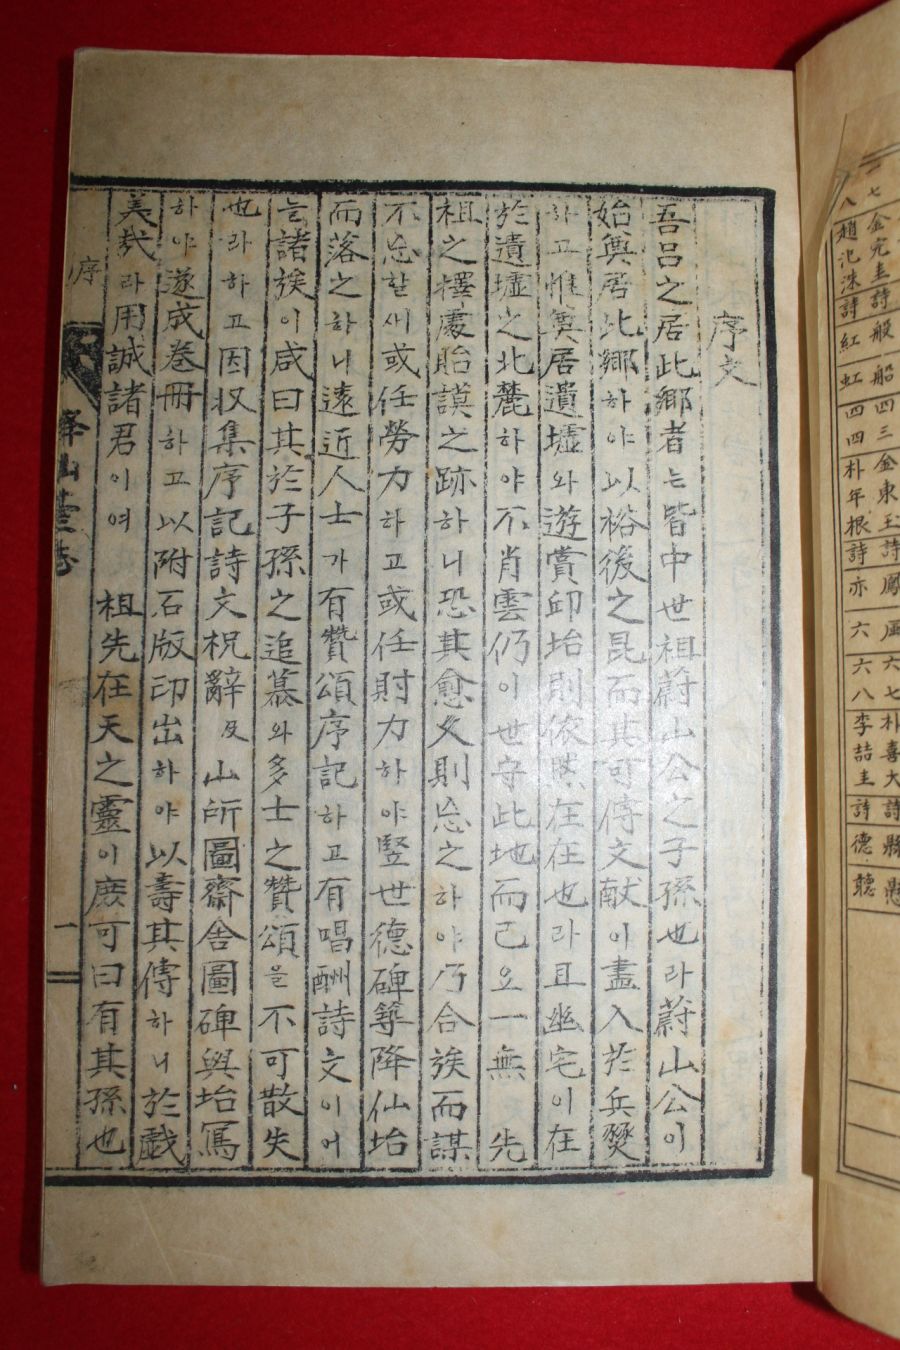 序文
吾呂之居此鄕者는皆中世祖蔚山公之子孫也라蔚山公이
始奠居此鄕하야以裕後之昆而其可傳文献이盡入於兵燹
하고惟奠居遺墟와遊賞邱坮則依然在在也라且幽宅이在
於遺墟之北麓하야不肖雲仍이世守此地而已요一無 先
祖之擇處貽謨之跡하니恐其愈久則忘之하야乃合族而謀
不忘할새或任勞力하고或任財力하야竪世德碑築降仙坮
而落之하니遠近人士가有贊頌序記하고有唱酬詩文이어
늘諸族이咸曰其於子孫之追慕와多士之贊頌을不可散失
也라하고因収集序記詩文柷辭及山所圖齋舍圖碑與坮寫
하야遂成卷冊하고以附石版印出하야以壽其傳하니於戱
美哉라用誠諸君이여 祖先在天之靈이庶可曰有其孫也
序
一
七 金完圭 詩 般 船 四 三 金東玉 詩 鳳 六 七 朴喜大 詩 縣
八 趙 洙 詩 紅 虹 四 四 朴年根 詩 亦 六 六 八 李喆圭 詩 德 聽